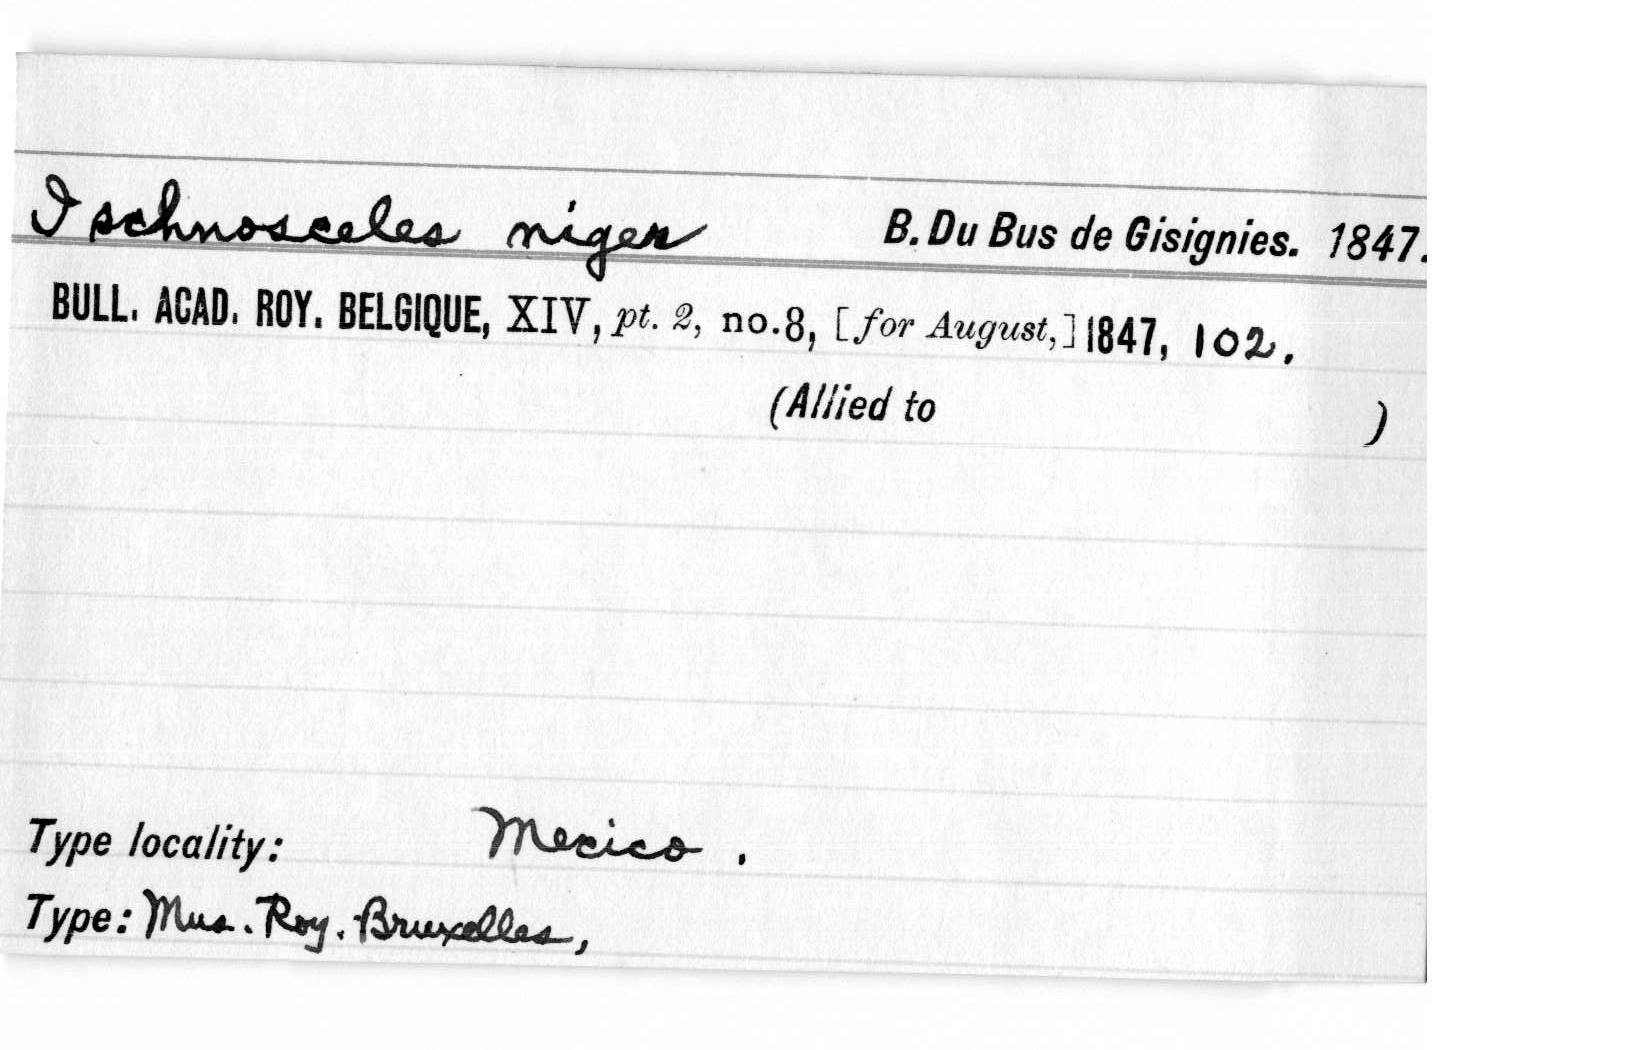 Ischnosceles niger B. Du Bus de Gisignies. 1847.
BULL. ACAD. ROY. BELGIQUE, XIV, pt. 2, no.8, [for August,] 1847, 102.
(Allied to )
Type locality: Mexico.
Type: Mus. Roy. Bruxelles,